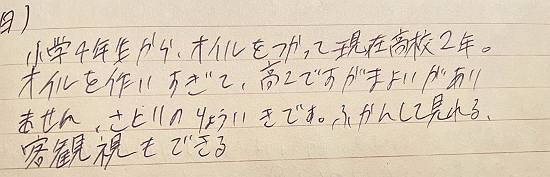 日)
小学4年生から、オイルをつかって現在高校2年。
オイルを作りすぎて、高2ですがまよいがあり
ません。さとりのりょういきです。ふかんして見れる、
客観視もできる